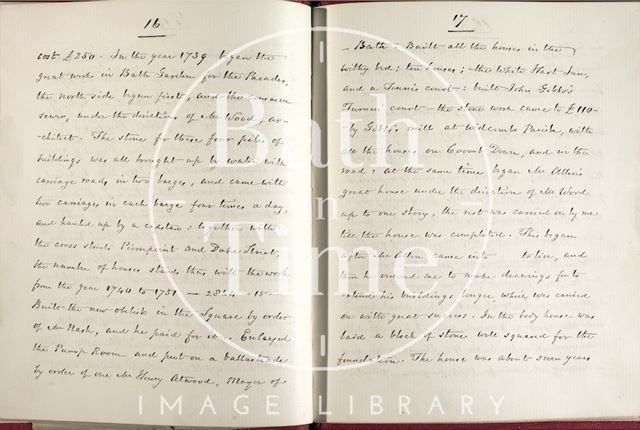 16
cost £250. In the year 1739 began the
great work in Bath Garden for the Parades,
the north side began first, and the common
sewer, under the direction of Mr Wood, ar-
-chitect. The stone for these four piles of
buildings was all brought up by water with
carriage made in two barges, and came with
two carriages in each barge four times a day,
and hauled up by a capstan: together with
the cross streets Pierrepoint and Duke Street,
the number of houses stands thus with the work
from the year 1740 to 1751
Built the new oblisk in the Square by order
of Mr Nash, and he paid for it. Enlarged
the Pump Room and put on a ballustrade
by order of one Mr Henry Atwood, Mayor of
17
Bath: Built all the houses in the
withy bed; ten houses; the White Hart Inn,
and a Tennis court: built John Gibbs's
court - the stone work came to £110
by Gibbs's mill at Widcombe Parish, with
all the houses on Coomb Down, and in the
road: at the same time began Mr Allen's
great house under the direction of Mr Wood
up to one story, the rest was carried on by me
till the house was completed. This began
after Mr Allen came into to live, and
then he ordered me to make drawings for to
extend his buildings longer, which was carried
on with great success. In the body house was
laid a block of stone well squared for the
foundation. The house was about seven years
Bath
in
Time
IMAGE LIBRARY